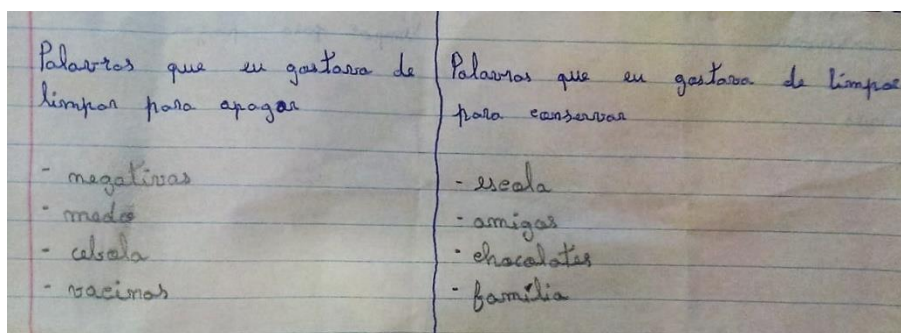 Palavras que eu gostava de
limpar para apagar
- negativas
- medo
- cebola
- vacinas
Palavras que eu gostava de limpar
para conservar
- escola
- amigos
- chocolates
- família